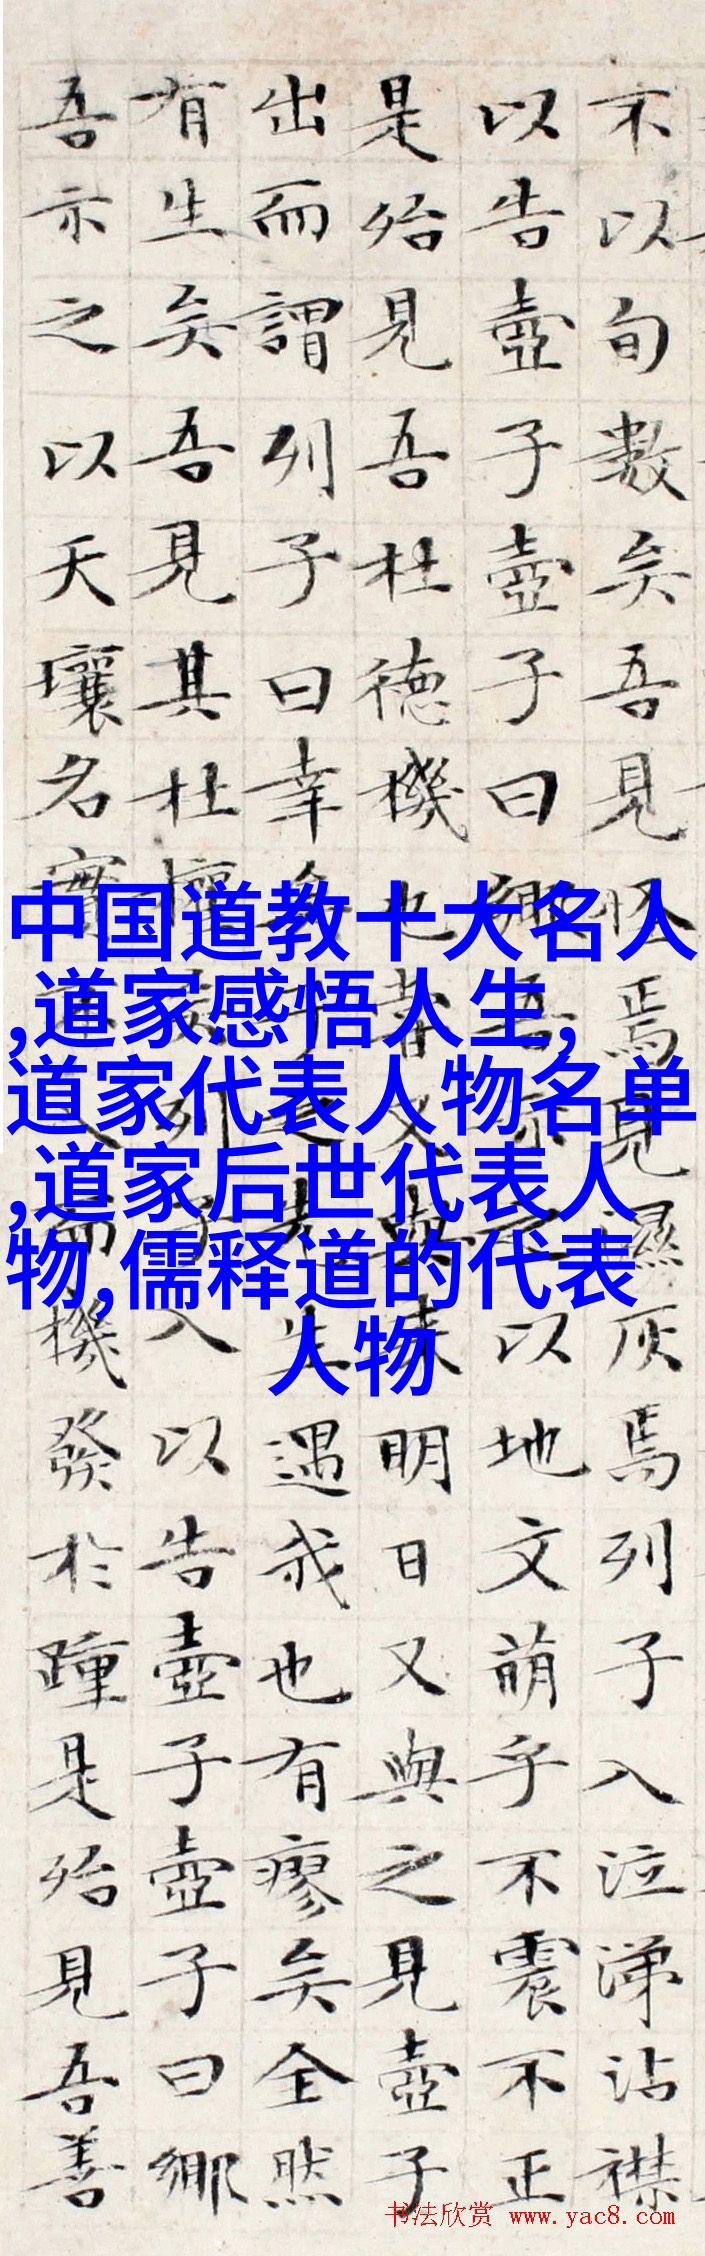 不以旬數矣吾見怪焉見濕灰焉列子入泣涕沾襟
以告壺子壺子曰鄉吾示之以地文萌乎不震不正
是殆見吾杜德機也嘗又與来明日又與之見壺子
出而謂列子曰幸矣子之先生遇我也有瘳矣全然
有生矣吾見其杜權矣列子入以告壺子壺子曰鄉
吾示之以天壤名實不入而機發於踵是殆見吾善
中国道教十大名人
,道家感悟人生,
道家代表人物名单
,道家后世代表人
物,儒释道的代表
人物
书法欣赏 www.yac8.com